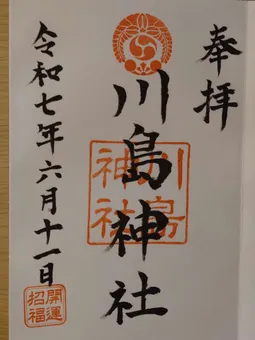 奉拝
川島神社
川島神社
令和七年六月十一日
開運
招福